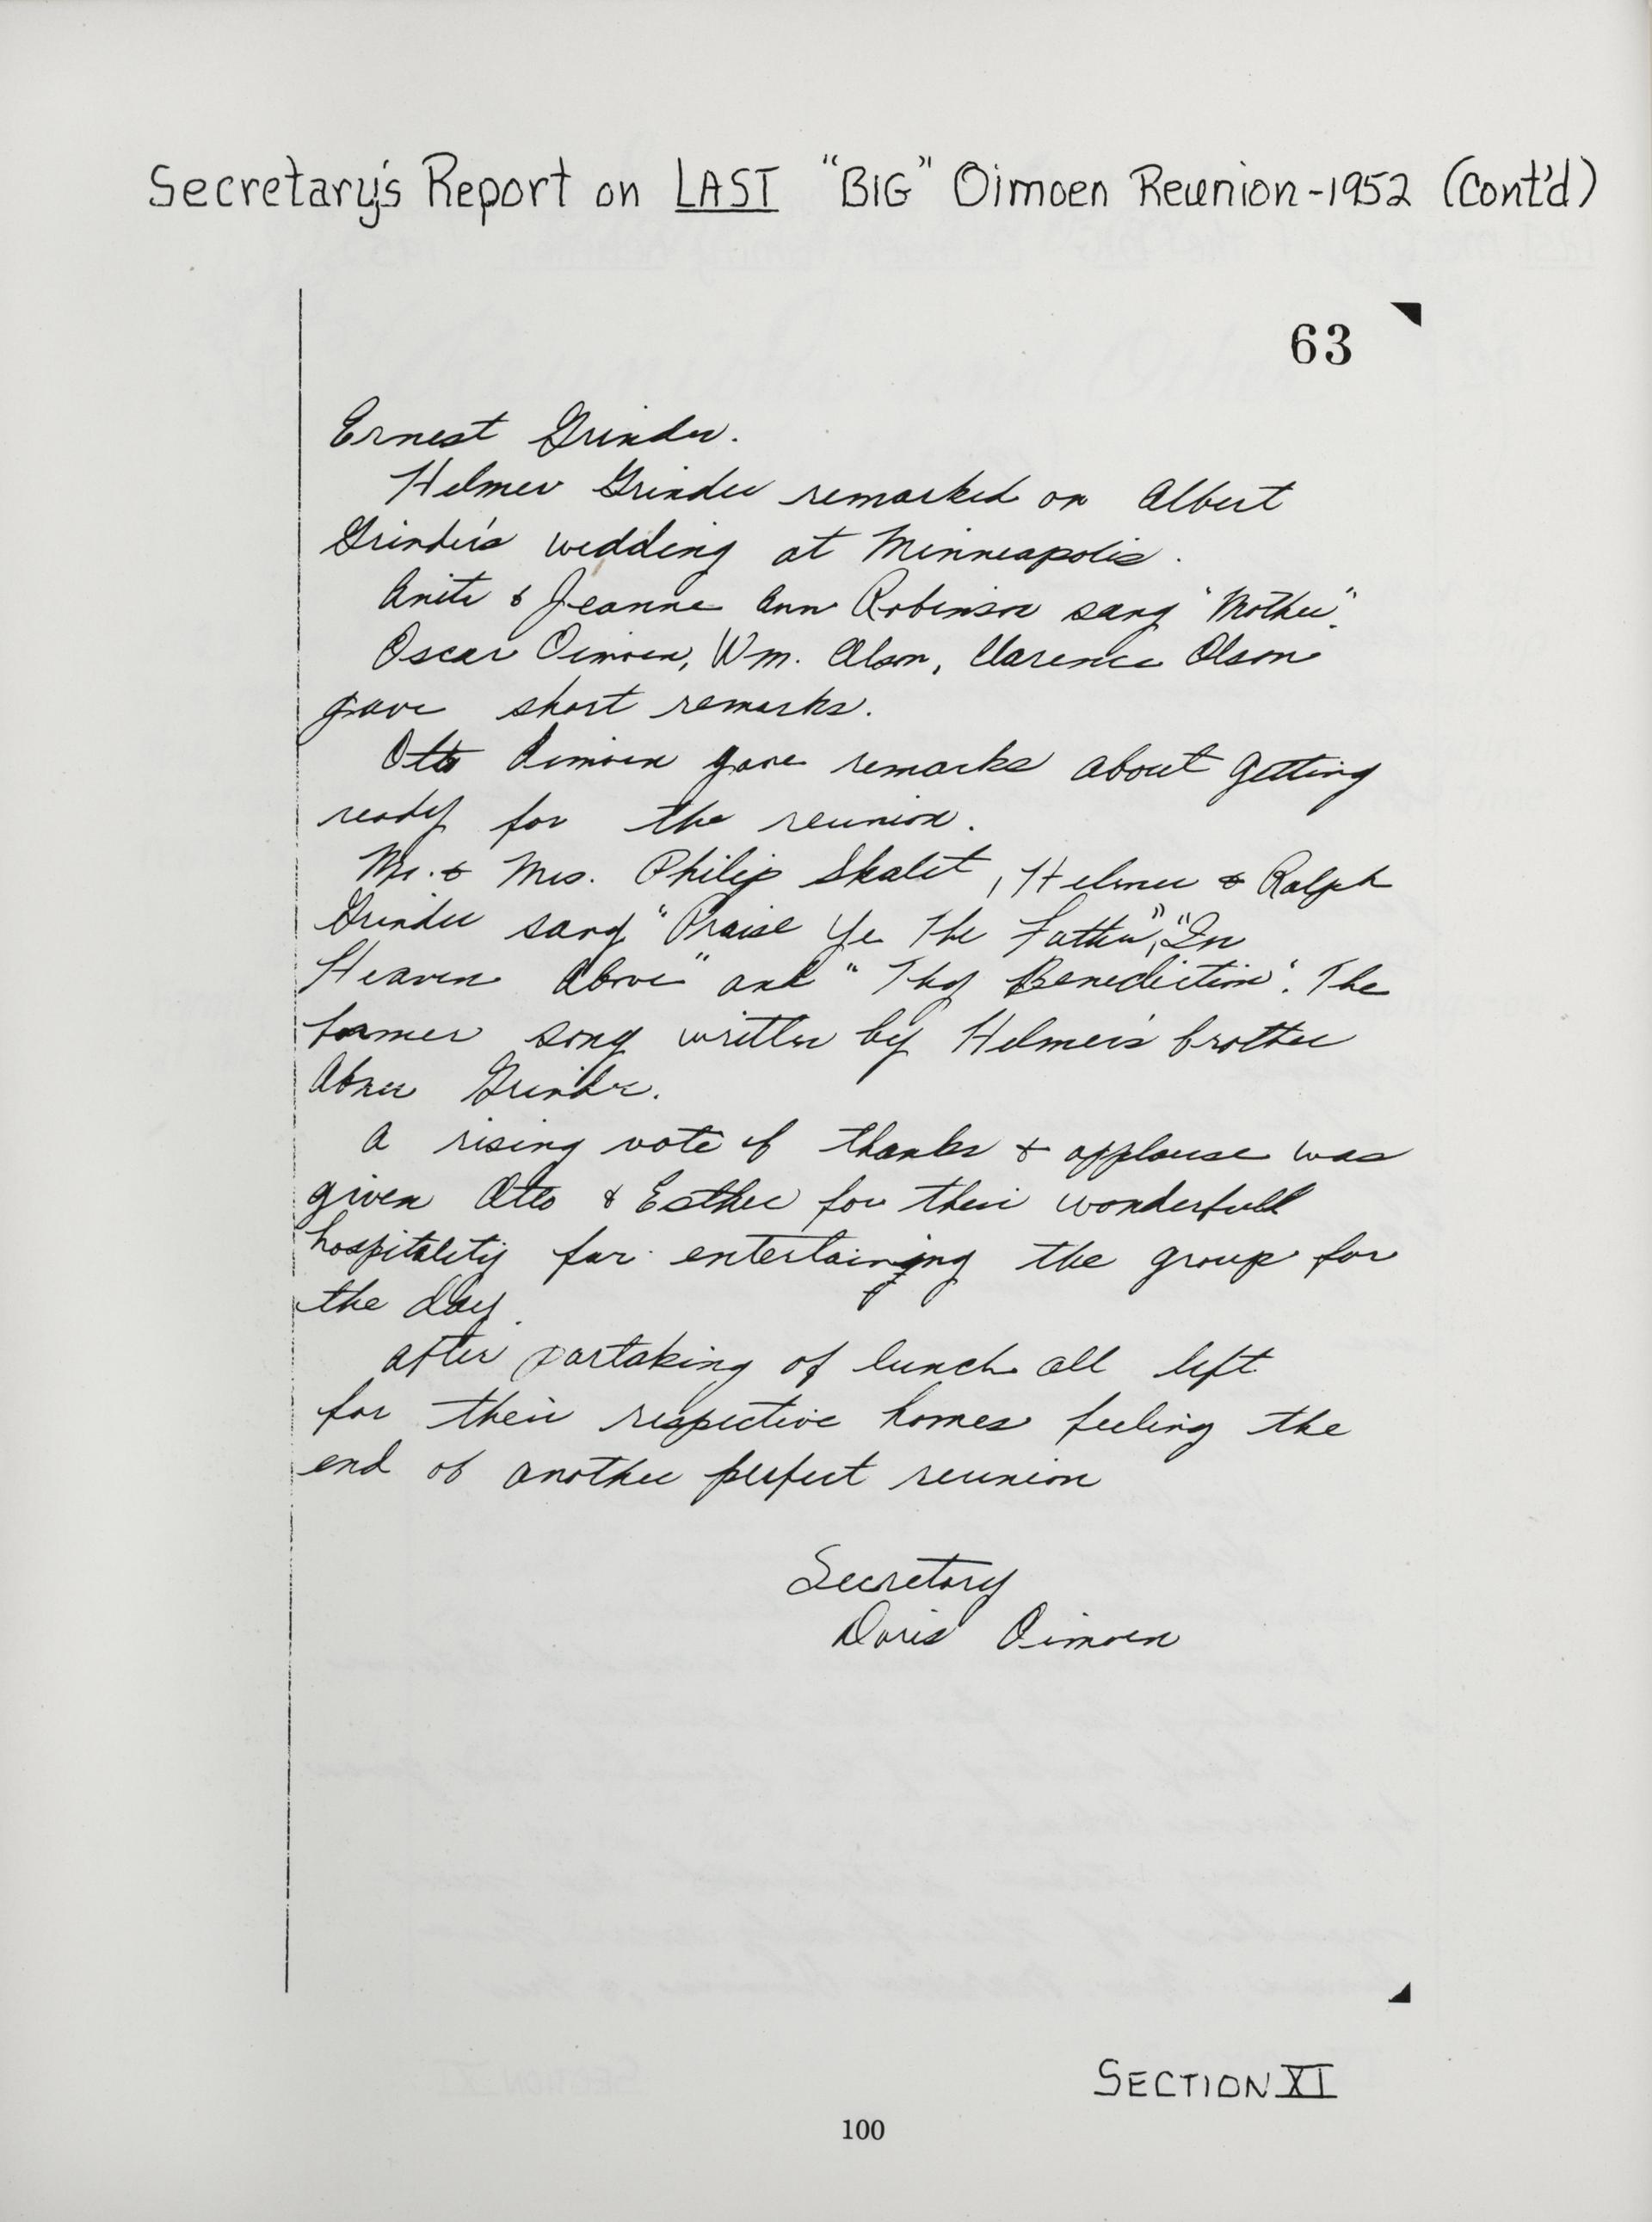 Secretary's Report on LAST "BIG" Oimoen Reunion-1952 (Cont'd)
63
Ernest Grinder.
Helmer Grinder remarked on Albert
Grinder's wedding at Minneapolis.
Anita & Jeanne Ann Robinson sang "Mother".
Oscar Oimoen, Wm. Olson, Clarence Olson
gave short remarks.
Otto Oimoen gave remarks about getting
ready for the reunion.
Mr. & Mrs. Philip Skalet, Helmer & Ralph
Grinder sang "Praise Ye The Father", "In
Heaven Above" and "Thy Benediction". The
former song written by Helmer's brother
Abner Grinder.
A rising vote of thanks & applause was
given Otto & Esther for their wonderfull
hospitality for entertaining the group for
the day.
After partaking of lunch all left
for their respective homes feeling the
end of another perfect reunion
Secretary
Doris Oimoen
SECTION XI
100